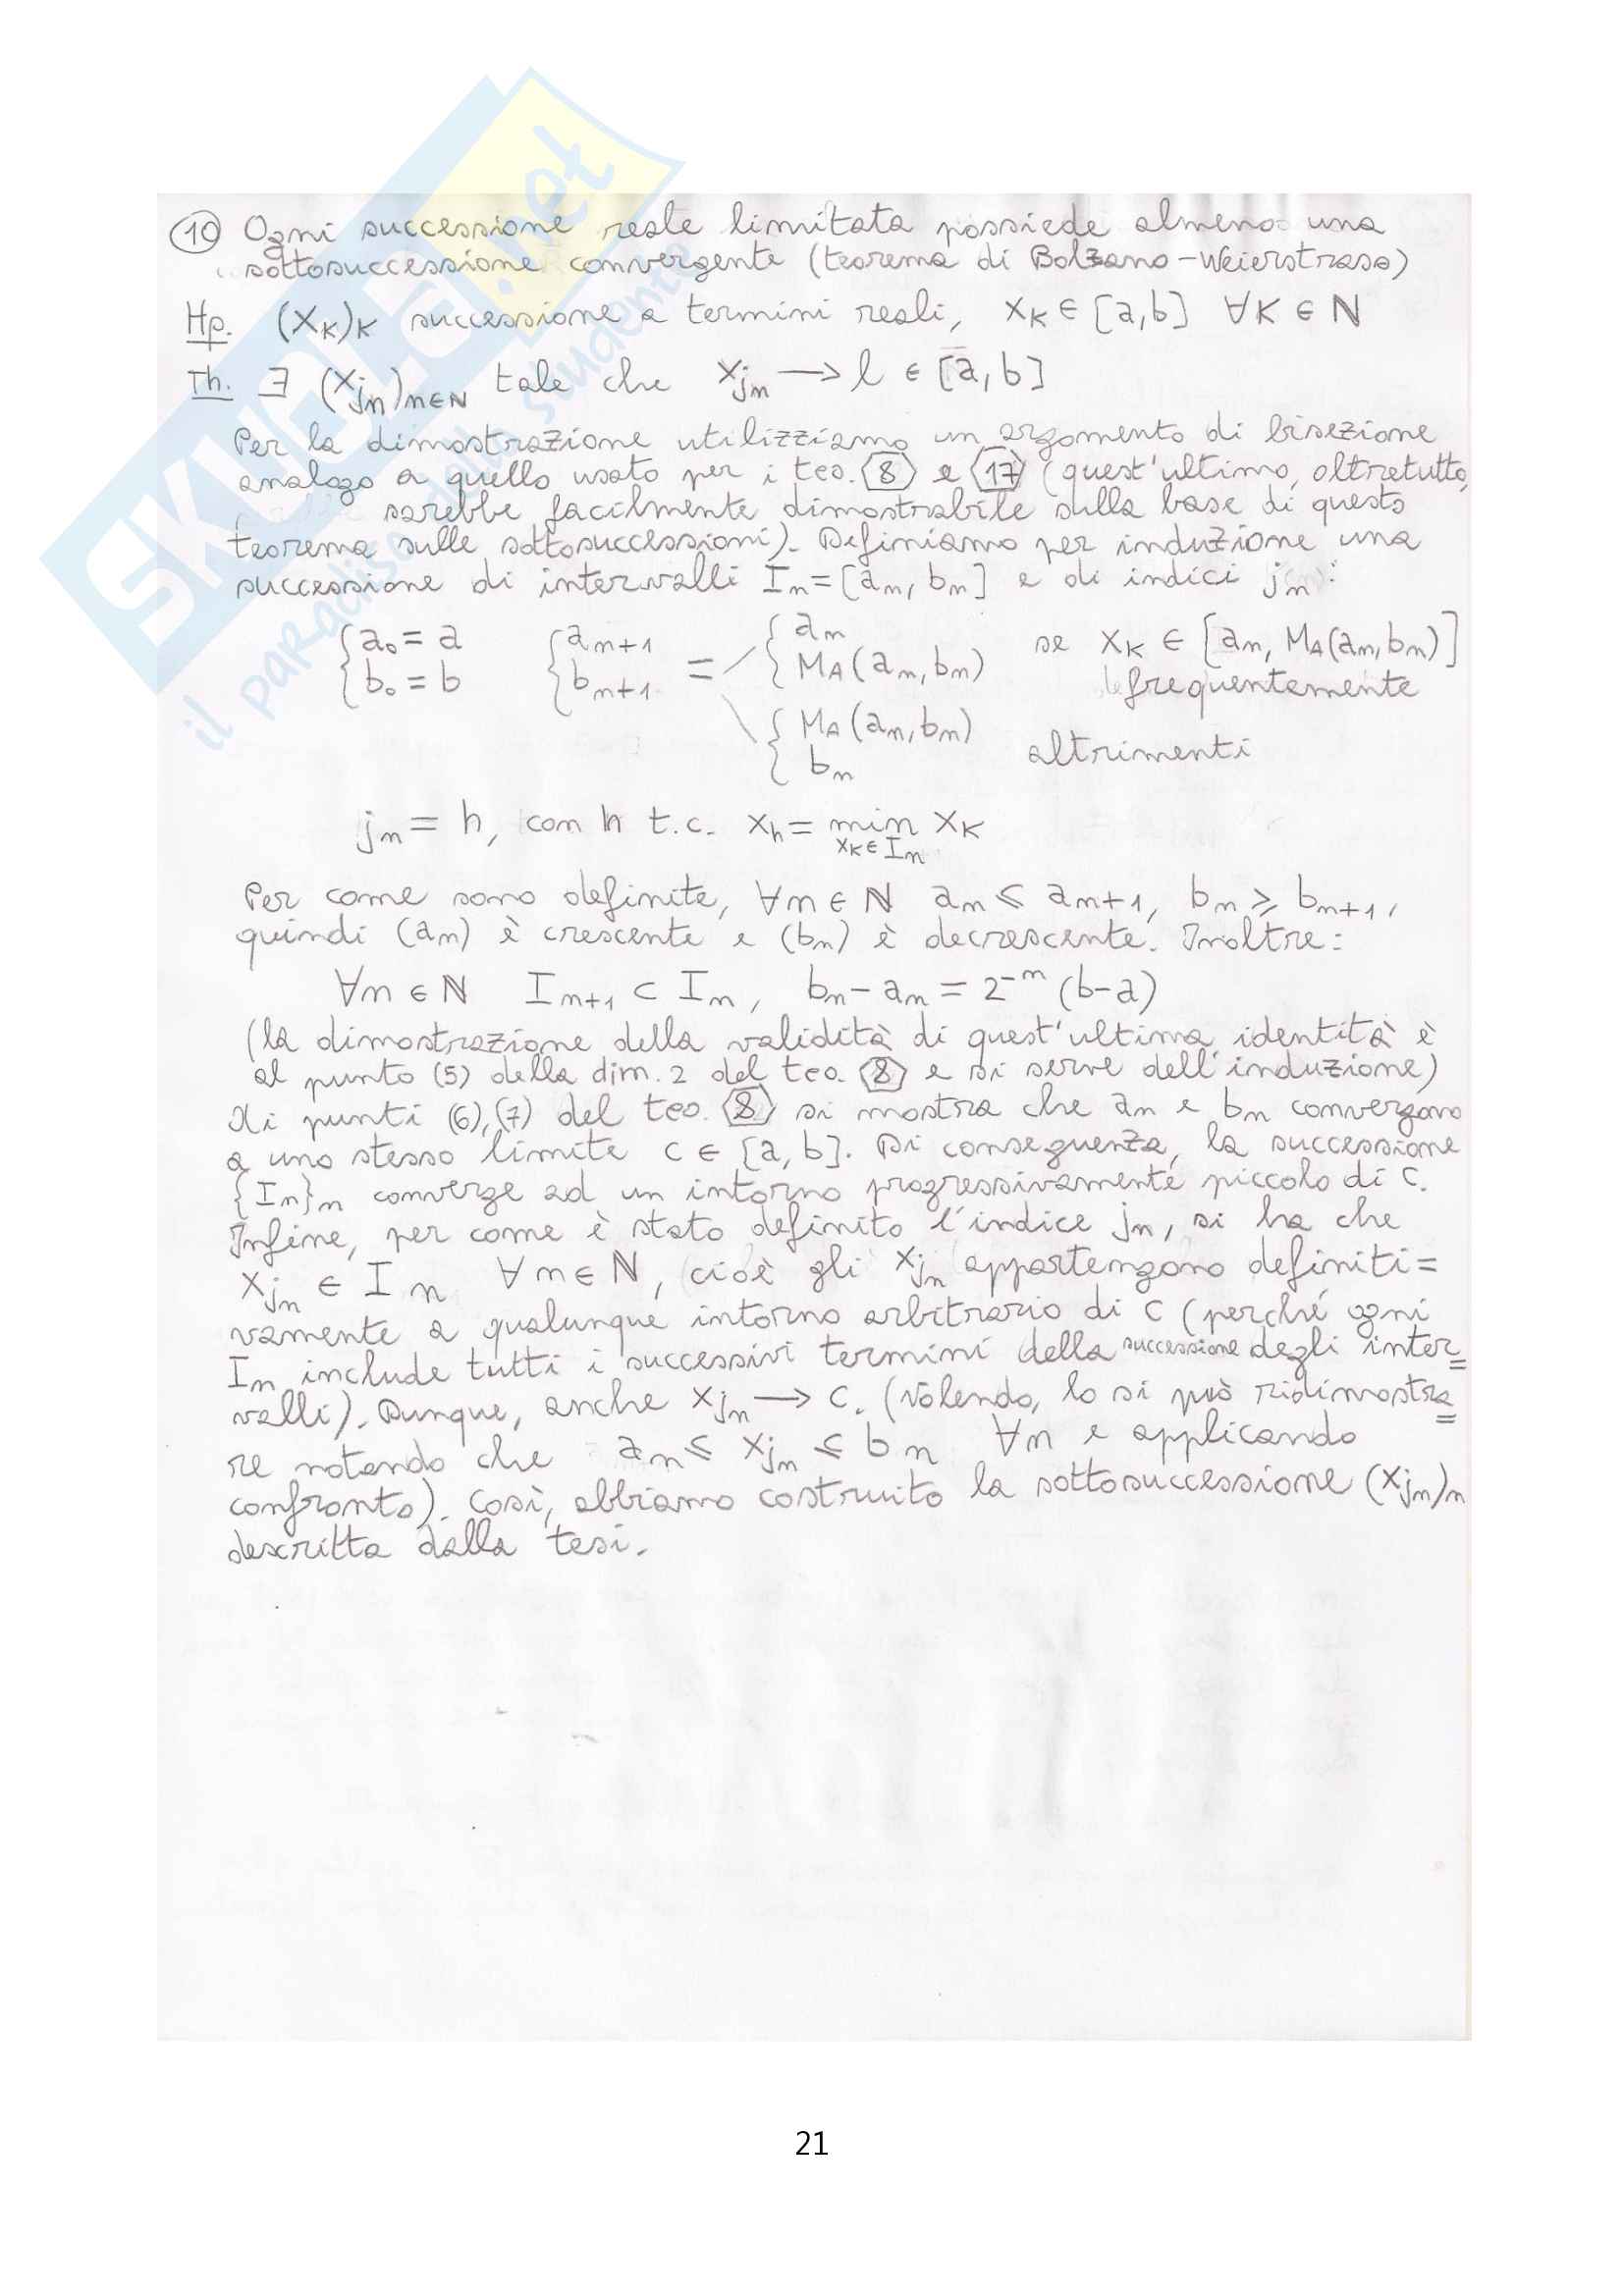 SKUOLA.net
il paradiso dello studente
⑩ Ogni successione reale limitata possiede almeno una
sottosuccessione convergente (teorema di Bolzano-Weierstrass)
Hp. (x_K)_K successione a termini reali, x_K ∈ [a,b] ∀K ∈ ℕ
Th. ∃ (x_{j_n})_{n∈ℕ} tale che x_{j_n} → l ∈ [a,b]
Per la dimostrazione utilizziamo un argomento di bisezione
analogo a quello usato per i teo. 8 e 17 (quest'ultimo, oltretutto,
sarebbe facilmente dimostrabile sulla base di questo
teorema sulle sottosuccessioni). Definiamo per induzione una
successione di intervalli I_n = [a_n, b_n] e di indici j_n:
{a_0 = a {a_{n+1} = {a_n se x_K ∈ [a_n, M_A(a_n,b_n)]
{b_0 = b {b_{n+1} {M_A(a_n,b_n) frequentemente
{M_A(a_n,b_n)
{b_n altrimenti
j_n = h, con h t.c. x_h = min_{x_K ∈ I_n} x_K
Per come sono definite, ∀n ∈ ℕ a_n ≤ a_{n+1}, b_n ≥ b_{n+1},
quindi (a_n) è crescente e (b_n) è decrescente. Inoltre:
∀n ∈ ℕ I_{n+1} ⊂ I_n, b_n - a_n = 2^{-n} (b-a)
(la dimostrazione della validità di quest'ultima identità è
al punto (5) della dim. 2 del teo. 8 e si serve dell'induzione)
Ai punti (6),(7) del teo. 8 si mostra che a_n e b_n convergono
a uno stesso limite c ∈ [a,b]. Di conseguenza, la successione
{I_n}_n converge ad un intorno progressivamente piccolo di c.
Infine, per come è stato definito l'indice j_n, si ha che
x_{j_n} ∈ I_n ∀n ∈ ℕ, cioè gli x_{j_n} appartengono definiti=
vamente a qualunque intorno arbitrario di c (perché ogni
I_n include tutti i successivi termini della successione degli inter=
valli). Dunque, anche x_{j_n} → c. (Volendo, lo si può ridimostra=
re notando che a_n ≤ x_{j_n} ≤ b_n ∀n e applicando
confronto). Così, abbiamo costruito la sottosuccessione (x_{j_n})_n
descritta dalla tesi.
21